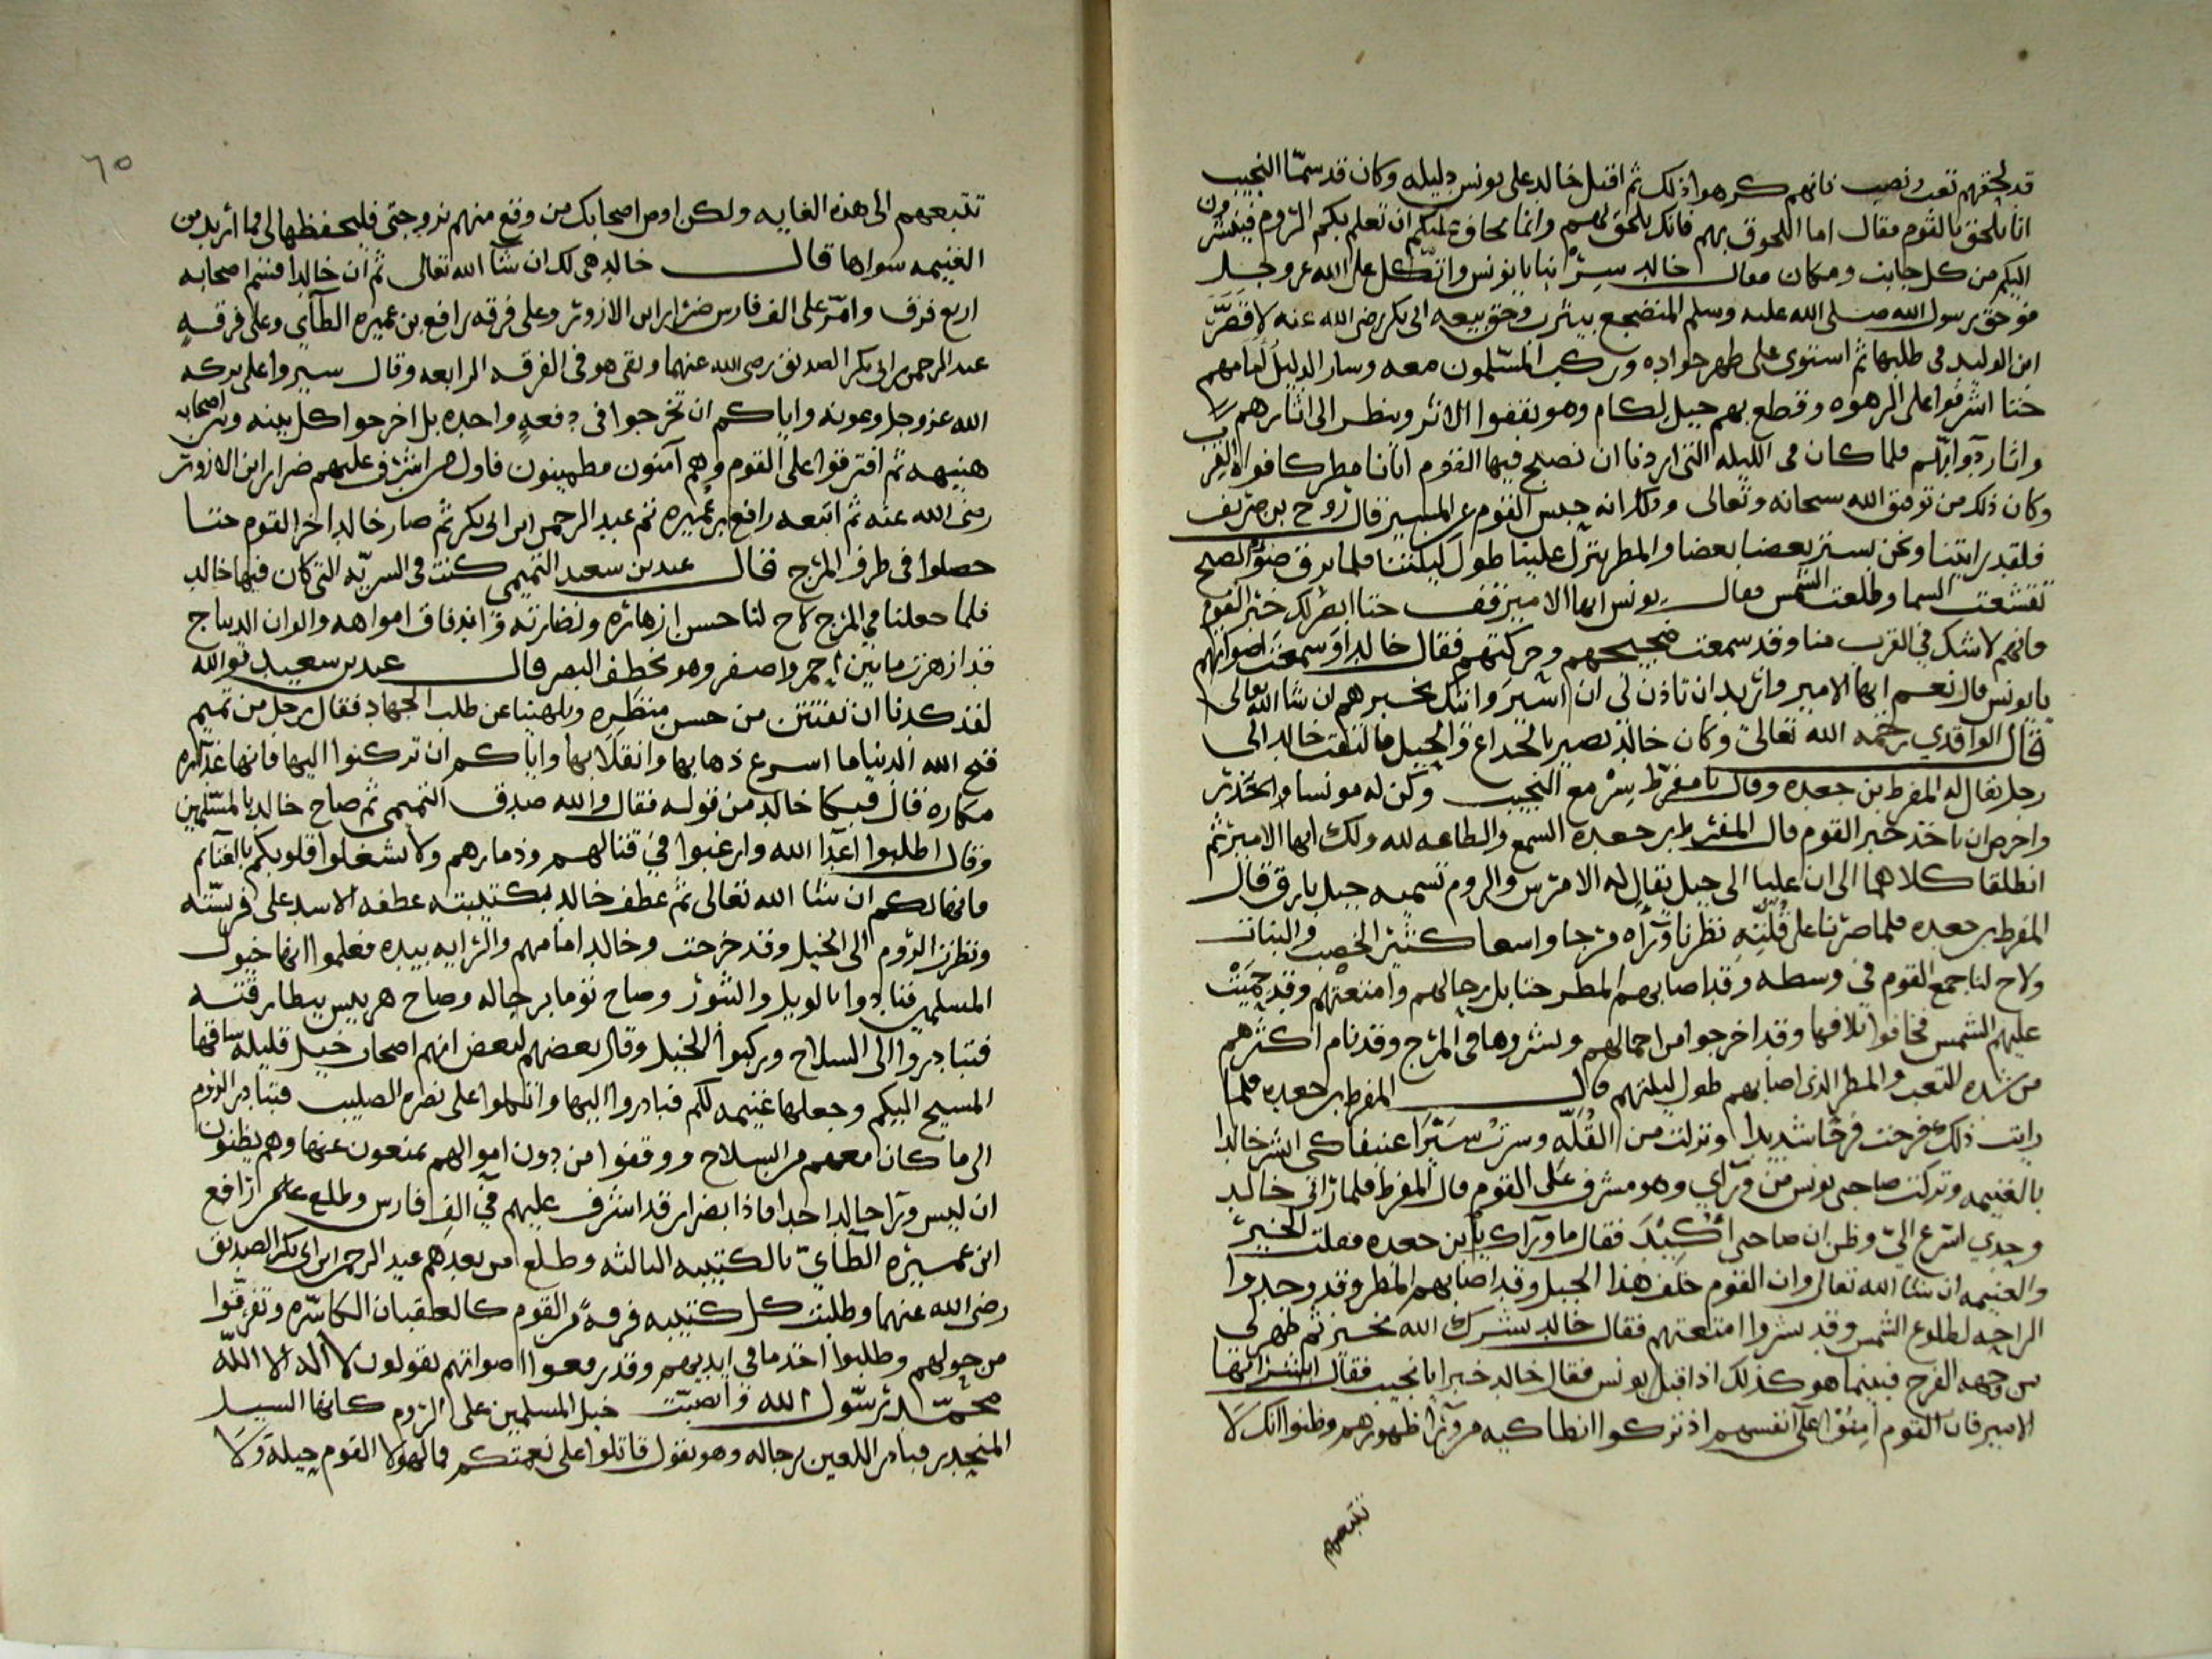 قد لحقهم تعب ونصب فانهم كرهوا ذلك ثم اقبل خالد على يونس دليله وكان قد سمّا النجيب
انا نلحق بالقوم فقال اما اللحوق بهم فانك تلحق بهم وانما نخاف عليكم ان تعلم بكم الروم فينفرون
اليكم من كل جانب ومكان فقال خالد سِرْ بنا يا يونس واتّكل على الله عز وجل
فوحق رسول الله صلى الله عليه وسلم المنضجع بيثرب وحق بيعه ابى بكر رضى الله عنه لا قصّر
ابن الوليد فى طلبها ثم استوى على ظهر جواده وركب المسلمون معه وسار الدليل امامهم
حتا اشرفوا على الرهوه وقطع بهم جبل لكام وهو يقفوا الاثر وينظر الى اثارهم
واثار دوابّهم فلما كان فى الليله التى اردنا ان نصبح فيها القوم اتانا مطر كافواه القرب
وكان ذلك من توفيق الله سبحانه وتعالى وذلك انه حبس القوم عن المسير قال روح بن طريف
فلقد رايتنا ونحن يستر بعضنا بعضا والمطر ينزل علينا طول ليلتنا فلما برق ضوّ الصبح
تقشعت السما وطلعت الشمس فقال يونس ايها الامير قف حتا انظر لك خبر القوم
فانهم لا شك فى القرب منا وقد سمعت ضجيجهم وحركتهم فقال خالد اوَسمعت اصواتهم
يا يونس قال نعم ايها الامير واريد ان تاذن لى ان اسير واتيك بخبرهم ان شا الله تعالى
قال الواقدي رحمه الله تعالى وكان خالد بصير بالخداع والحيل فالتفت خالد الى
رجل يقال له المفرط بن جعده وقال يا مفرّط سِرْ مع النجيب وكن له مونسا والحذر
واحرص ان تاخذ خبر القوم قال المفرط بن جعده السمع والطاعه لله ولك ايها الامير ثم
انطلقا كلاهما الى ان عليا الى جبل يقال له الامرش والروم تسميه جبل بارق قال
المفرط بن جعده فلما صرنا على قُلّتِه نظرنا وَرَاه مرجا واسعا كثير الخصب والنبات
ولاح لنا جمع القوم فى وسطه وقد اصابهم المطر حتا بل رحالهم وامتعتهم وقد حَمِيَتْ
عليهم الشمس فخافوا تلافها وقد اخرجوا من احمالهم ونشروها فى المرج وقد نام اكثرهم
من شده التعب والمطر الذى اصابهم طول ليلتهم قال المفرط بن جعده فلما
رايت ذلك فرحت فرحًا شديدا ونزلت من القُلّه وسرت سَيْرًا عنيفا كى ابشر خالدا
بالغنيمه وتركت صاحبى يونس من ورآي وهو مشرف على القوم قال المفرط فلما رآنى خالد
وحدي اسرع اليّ وظن ان صاحبى أُكِيدَ فقال ما ورآك يا بن جعده فقلت الخير
والغنيمه ان شا الله تعالى وان القوم خلف هذا الجبل وقد اصابهم المطر وقد وجدوا
الراحه لطلوع الشمس وقد نشروا امتعتهم فقال خالد بشرك الله بخير ثم ظهر لى
من وجهه الفرح فبينما هو كذلك اذ اقبل يونس فقال خالد خيرا يا نجيب فقال ابشر ايها
الامير فان القوم امِنُوْا على انفسهم اذ تركوا انطاكيه من ورآ ظهورهم وظنوا انك لَا
تتبعهم
٦٥
تتبعهم الى هذه الغايه ولكن اوص اصحابك من وقع منهم بزوجتى فليحفظها لى فما أريد من
الغنيمه سواها قال خالد هى لك ان شآ الله تعالى ثم ان خالدا قسّم اصحابه
اربع فرق وامّر على الف فارس ضرار ابن الازور وعلى فرقه رافع بن عميره الطآي وعلى فرقه
عبد الرحمن بن ابى بكر الصديق رضى الله عنهما وبقى هو فى الفرقه الرابعه وقال سيروا على بركه
الله عز وجل وعونه واياكم ان تخرجوا فى دفعةٍ واحده بل اخرجوا كل بينه وبين اصحابه
هنيهه ثم افترقوا على القوم وهم آمنون مطمينون فاول من اشرف عليهم ضرار ابن الازور
رضى الله عنه ثم اتبعه رافع بن عميره ثم عبد الرحمن ابن ابى بكر ثم صار خالد اخر القوم حتا
حصلوا فى طرف المرج فقال عبد بن سعيد التميمى كنت فى السريّه التى كان فيها خالد
فلما حصلنا فى المرج لاح لنا حسن ازهاره ونضارته واندفاق امواهه والوان الديباج
قد ازهرت ما بين احمر واصفر وهو يخطف البصر قال عبد بن سعيد فوالله
لقد كدنا ان نفتتن من حسن منظره ويلهينا عن طلب الجهاد فقال رجل من تميم
قبح الله الدنيا ما اسرع ذهابها وانقلابها واياكم ان تركنوا اليها فانها غدّاره
مكاره قال فبكا خالد من قوله فقال والله صدق التميمى ثم صاح خالد بالمسلمين
وقال اطلبوا اعدآ الله وارغبوا فى قتالهم وذمارهم ولا تشغلوا قلوبكم بالغنآيم
فانها لكم ان شا الله تعالى ثم عطف خالد بكتيبته عطفه الاسد على فريسته
ونظرت الروم الى الخيل وقد خرجت وخالد امامهم والرايه بيده فعلموا انها خيول
المسلمين فنادوا بالويل والثبور وصاح توما برجاله وصاح هربيس ببطارقته
فتبادروا الى السلاح وركبوا الخيل وقال بعضهم لبعض انهم اصحاب خيل قليله ساقها
المسيح اليكم وجعلها غنيمه لكم فبادروا اليها واتكلوا على نصره الصليب فتبادر الروم
الى ما كان معهم من السلاح ووقفوا من دون اموالهم يمنعون عنها وهم يظنون
ان ليس ورآ خالد احد اما ذا بضرار قد اشرف عليهم فى الف فارس وطلع رافع
ابن عميره الطآيّ بالكتيبه الثالثه وطلع من بعدهم عبد الرحمن ابن ابى بكر الصديق
رضى الله عنهما وطلبت كل كتيبه فرقةً من القوم كالعقبان الكاسّره وتفرقوا
من حولهم وطلبوا اخذ ما فى ايديهم وقد رفعوا اصواتهم يقولون لا اله الا اللّه
محمّد رسّول الله وانصبّت خيل المسلمين على الروم كانها السيل
المنحدر فبادر اللعين برجاله وهو يقول قاتلوا على نعمتكم فما لهولا القوم حيلة وَلَا